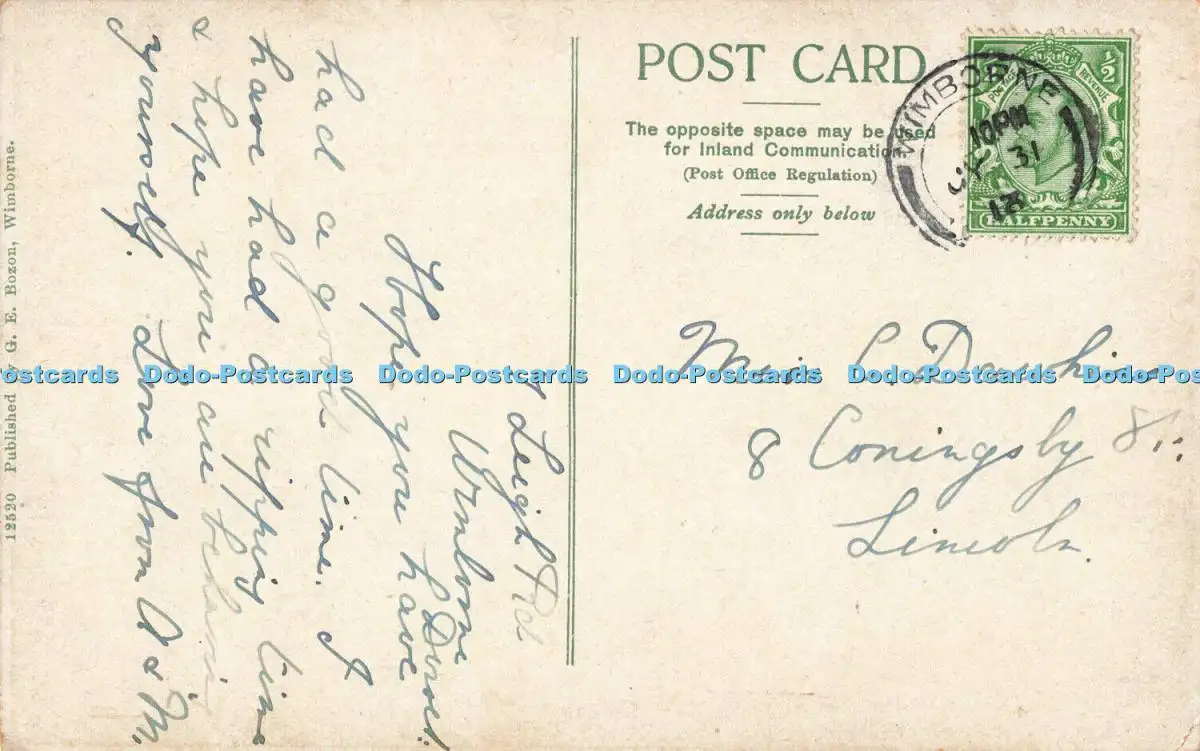 POST CARD
The opposite space may be used
for Inland Communication.
(Post Office Regulation)
Address only below
WIMBORNE
10 PM
JY 31
13
POSTAGE REVENUE
1/2
HALFPENNY
Leigh Rd
Wimborne
Dorset.
Hope you have
had a good time. I
have had a ripping time
& hope you are behaving
yourself. Love from A & M.
Miss L. Dawkins
8 Coningsby St.
Lincoln.
12520 Published by G. E. Bozon, Wimborne.
Dodo-Postcards Dodo-Postcards Dodo-Postcards Dodo-Postcards Dodo-Postcards